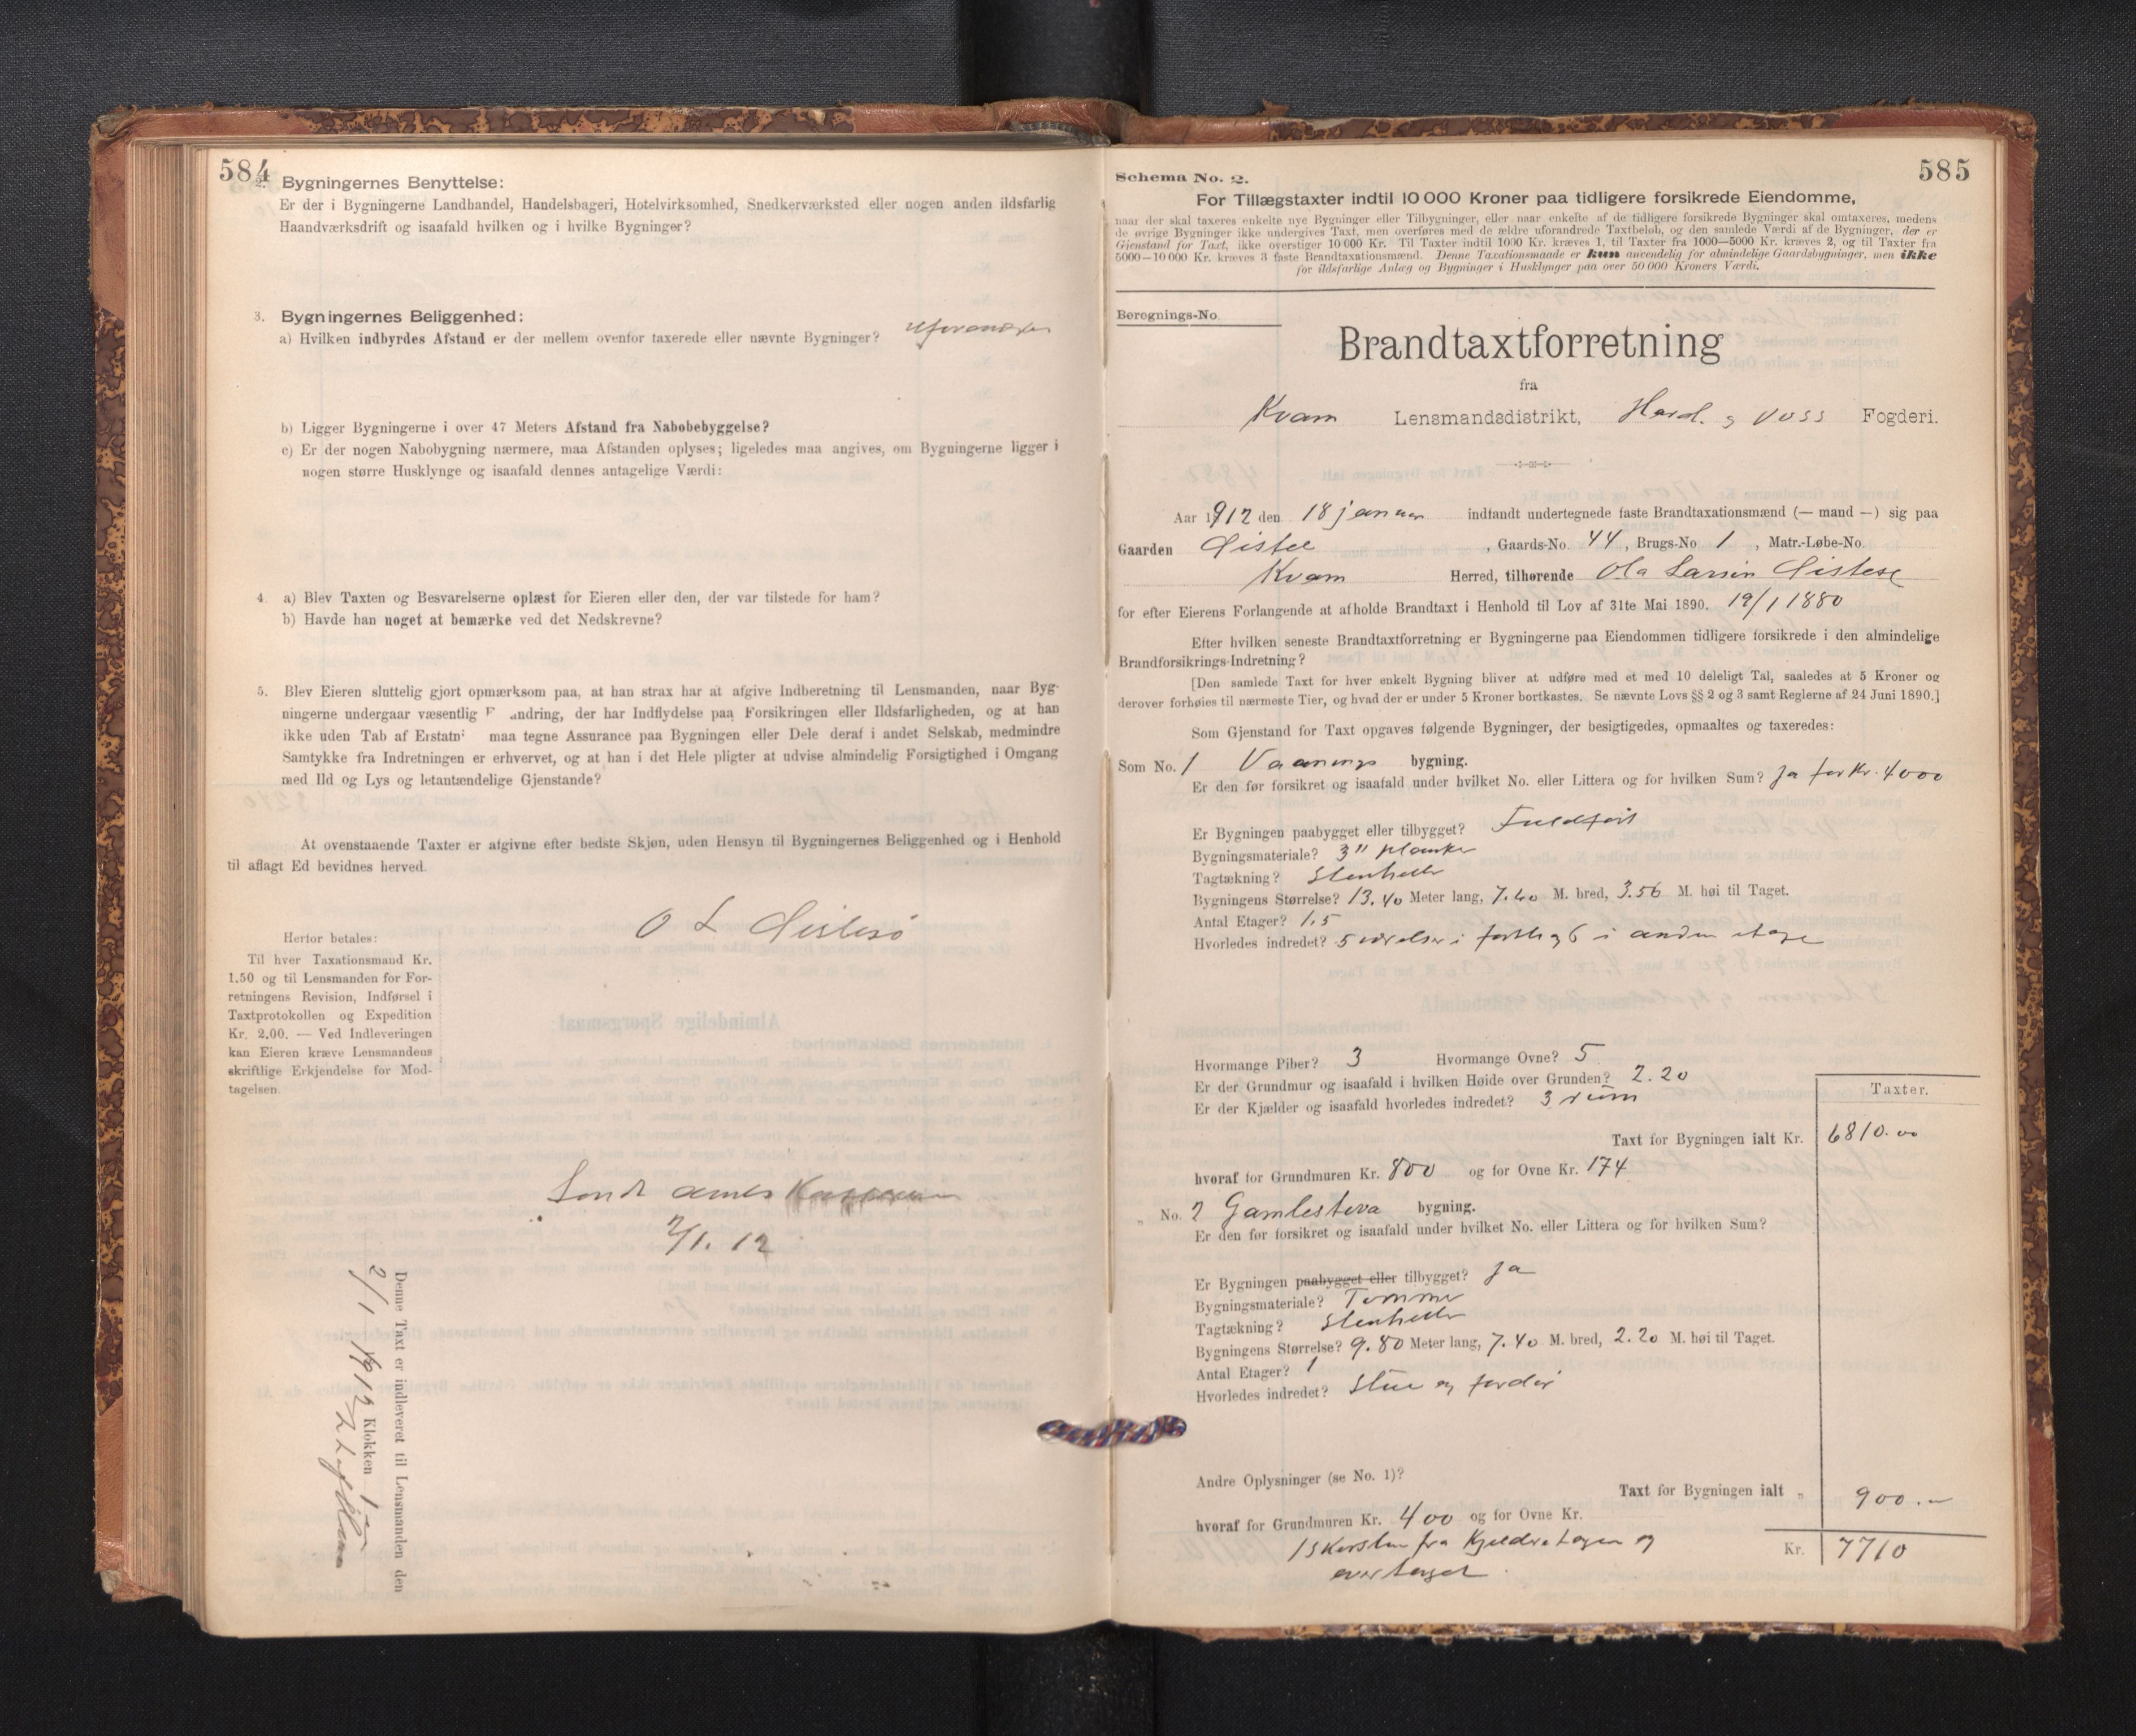 584
2. Bygningernes Benyttelse:
Er der i Bygningerne Landhandel, Handelsbageri, Hotelvirksomhed, Snedkerværksted eller nogen anden ildsfarlig
Haandværksdrift og isaafald hvilken og i hvilke Bygninger?
3. Bygningernes Beliggenhed:
a) Hvilken indbyrdes Afstand er der mellem ovenfor taxerede eller nævnte Bygninger? Uforandret
b) Ligger Bygningerne i over 47 Meters Afstand fra Nabobebyggelse?
c) Er der nogen Nabobygning nærmere, maa Afstanden oplyses; ligeledes maa angives, om Bygningerne ligger i
nogen større Husklynge og isaafald dennes antagelige Værdi:
4. a) Blev Taxten og Besvarelserne oplæst for Eieren eller den, der var tilstede for ham?
b) Havde han noget at bemærke ved det Nedskrevne?
5. Blev Eieren sluttelig gjort opmærksom paa, at han strax har at afgive Indberetning til Lensmanden, naar Byg-
ningerne undergaar væsentlig F andring, der har Indflydelse paa Forsikringen eller Ildsfarligheden, og at han
ikke uden Tab af Erstatn maa tegne Assurance paa Bygningen eller Dele deraf i andet Selskab, medmindre
Samtykke fra Indretningen er erhvervet, og at han i det Hele pligter at udvise almindelig Forsigtighed i Omgang
med Ild og Lys og letantændelige Gjenstande?
At ovenstaaende Taxter er afgivne efter bedste Skjøn, uden Hensyn til Bygningernes Beliggenhed og i Henhold
til aflagt Ed bevidnes herved.
O L Øistesø
Herfor betales:
Til hver Taxationsmand Kr.
1.50 og til Lensmanden for For-
retningens Revision, Indførsel i
Taxtprotokollen og Expedition
Kr. 2.00. — Ved Indleveringen
kan Eieren kræve Lensmandens
skriftlige Erkjendelse for Mod-
tagelsen.
2/1. 12
Denne Taxt er indleveret til Lensmanden den
2/1 1912 Klokken 1
585
Schema No. 2.
For Tillægstaxter indtil 10 000 Kroner paa tidligere forsikrede Eiendomme,
naar der skal taxeres enkelte nye Bygninger eller Tilbygninger, eller naar enkelte af de tidligere forsikrede Bygninger skal omtaxeres, medens
de øvrige Bygninger ikke undergives Taxt, men overføres med de ældre uforandrede Taxtbeløb, og den samlede Værdi af de Bygninger, der er
Gjenstand for Taxt, ikke overstiger 10 000 Kr. Til Taxter indtil 1000 Kr. kræves 1, til Taxter fra 1000—5000 Kr. kræves 2, og til Taxter fra
5000—10 000 Kr. kræves 3 faste Brandtaxationsmænd. Denne Taxationsmaade er kun anvendelig for almindelige Gaardsbygninger, men ikke
for ildsfarlige Anlæg og Bygninger i Husklynger paa over 50 000 Kroners Værdi.
Beregnings-No.
Brandtaxtforretning
fra
Kvam Lensmandsdistrikt, Hard. og Voss Fogderi.
Aar 1912 den 18 januar indfandt undertegnede faste Brandtaxationsmænd (— mand —) sig paa
Gaarden , Gaards-No. 44, Brugs-No. 1, Matr.-Løbe-No.
Kvam Herred, tilhørende Ola Larsen Øistese
for efter Eierens Forlangende at afholde Brandtaxt i Henhold til Lov af 31te Mai 1890. 19/1 1880
Efter hvilken seneste Brandtaxtforretning er Bygningerne paa Eiendommen tidligere forsikrede i den almindelige
Brandforsikrings-Indretning?
[Den samlede Taxt for hver enkelt Bygning bliver at udføre med et med 10 deleligt Tal, saaledes at 5 Kroner og
derover forhøies til nærmeste Tier, og hvad der er under 5 Kroner bortkastes. Se nævnte Lovs §§ 2 og 3 samt Reglerne af 24 Juni 1890.]
Som Gjenstand for Taxt opgaves følgende Bygninger, der besigtigedes, opmaaltes og taxeredes:
Som No. 1 Vaanings bygning.
Er den før forsikret og isaafald under hvilket No. eller Littera og for hvilken Sum? Ja for Kr. 4000
Er Bygningen paabygget eller tilbygget? Fuldført
Bygningsmateriale? 3" planker
Tagtækning? Stenheller
Bygningens Størrelse? 13.40 Meter lang, 7.60 M. bred, 3.56 M. høi til Taget.
Antal Etager? 1.5
Hvorledes indredet? 5 værelser i første og 6 i anden etage
Hvormange Piber? 3 Hvormange Ovne? 5
Er der Grundmur og isaafald i hvilken Høide over Grunden? 2.20
Er der Kjælder og isaafald hvorledes indredet? 3 rum
Taxter.
Taxt for Bygningen ialt Kr. 6810.00
hvoraf for Grundmuren Kr. 800 og for Ovne Kr. 174
„ No. 2 Gamlestova bygning.
Er den før forsikret og isaafald under hvilket No. eller Littera og for hvilken Sum?
Er Bygningen paabygget eller tilbygget? Ja
Bygningsmateriale? Tømmer
Tagtækning? Stenheller
Bygningens Størrelse? 9.80 Meter lang, 7.40 M. bred, 2.20 M. høi til Taget.
Antal Etager? 1
Hvorledes indredet? Stue og
Andre Oplysninger (se No. 1)?
Taxt for Bygningen ialt „ 900.-
hvoraf for Grundmuren Kr. 400 og for Ovne Kr.
1 Skorsten fra Kjelder og
over taget
Kr. 7710